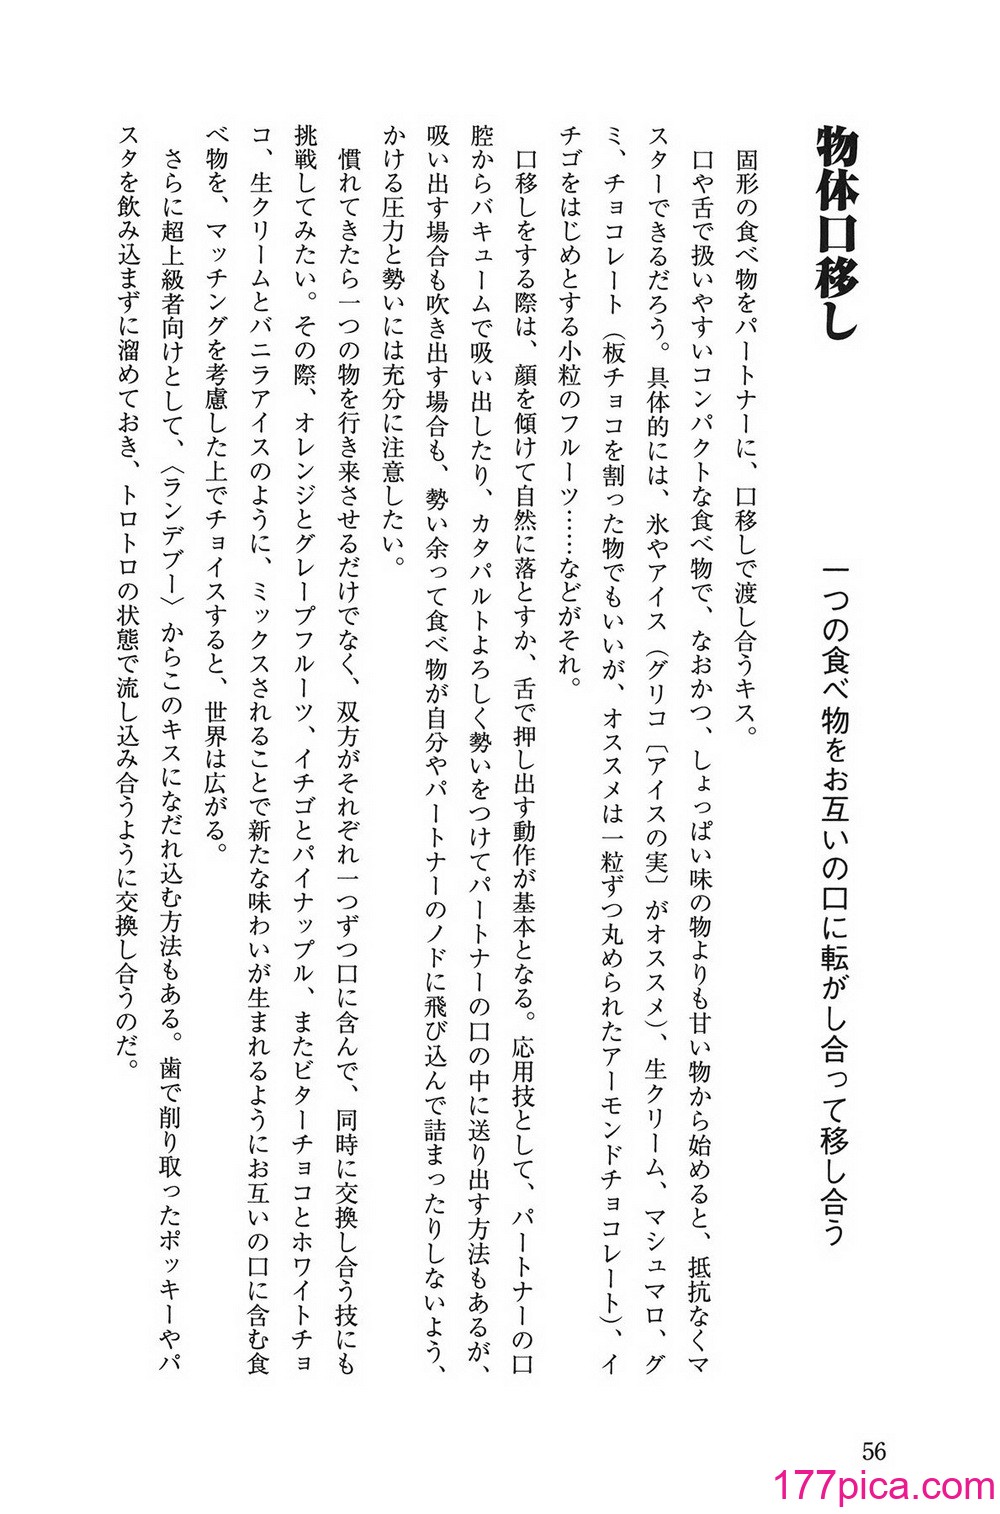 物体口移し
一つの食べ物をお互いの口に転がし合って移し合う
固形の食べ物をパートナーに、口移しで渡し合うキス。
口や舌で扱いやすいコンパクトな食べ物で、なおかつ、しょっぱい味の物よりも甘い物から始めると、抵抗なくマ
スターできるだろう。具体的には、氷やアイス（グリコ〔アイスの実〕がオススメ）、生クリーム、マシュマロ、グ
ミ、チョコレート（板チョコを割った物でもいいが、オススメは一粒ずつ丸められたアーモンドチョコレート）、イ
チゴをはじめとする小粒のフルーツ……などがそれ。
口移しをする際は、顔を傾けて自然に落とすか、舌で押し出す動作が基本となる。応用技として、パートナーの口
腔からバキュームで吸い出したり、カタパルトよろしく勢いをつけてパートナーの口の中に送り出す方法もあるが、
吸い出す場合も吹き出す場合も、勢い余って食べ物が自分やパートナーのノドに飛び込んで詰まったりしないよう、
かける圧力と勢いには充分に注意したい。
慣れてきたら一つの物を行き来させるだけでなく、双方がそれぞれ一つずつ口に含んで、同時に交換し合う技にも
挑戦してみたい。その際、オレンジとグレープフルーツ、イチゴとパイナップル、またビターチョコとホワイトチョ
コ、生クリームとバニラアイスのように、ミックスされることで新たな味わいが生まれるようにお互いの口に含む食
べ物を、マッチングを考慮した上でチョイスすると、世界は広がる。
さらに超上級者向けとして、〈ランデブー〉からこのキスになだれ込む方法もある。歯で削り取ったポッキーやパ
スタを飲み込まずに溜めておき、トロトロの状態で流し込み合うように交換し合うのだ。
56
177pica.com